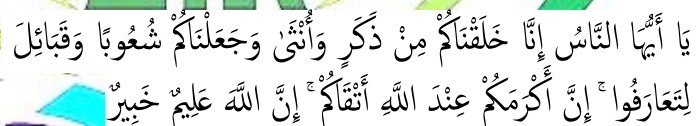 يَا أَيُّهَا النَّاسُ إِنَّا خَلَقْنَاكُمْ مِنْ ذَكَرٍ وَأُنْثَىٰ وَجَعَلْنَاكُمْ شُعُوبًا وَقَبَائِلَ
لِتَعَارَفُوا ۚ إِنَّ أَكْرَمَكُمْ عِنْدَ اللَّهِ أَتْقَاكُمْ ۚ إِنَّ اللَّهَ عَلِيمٌ خَبِيرٌ